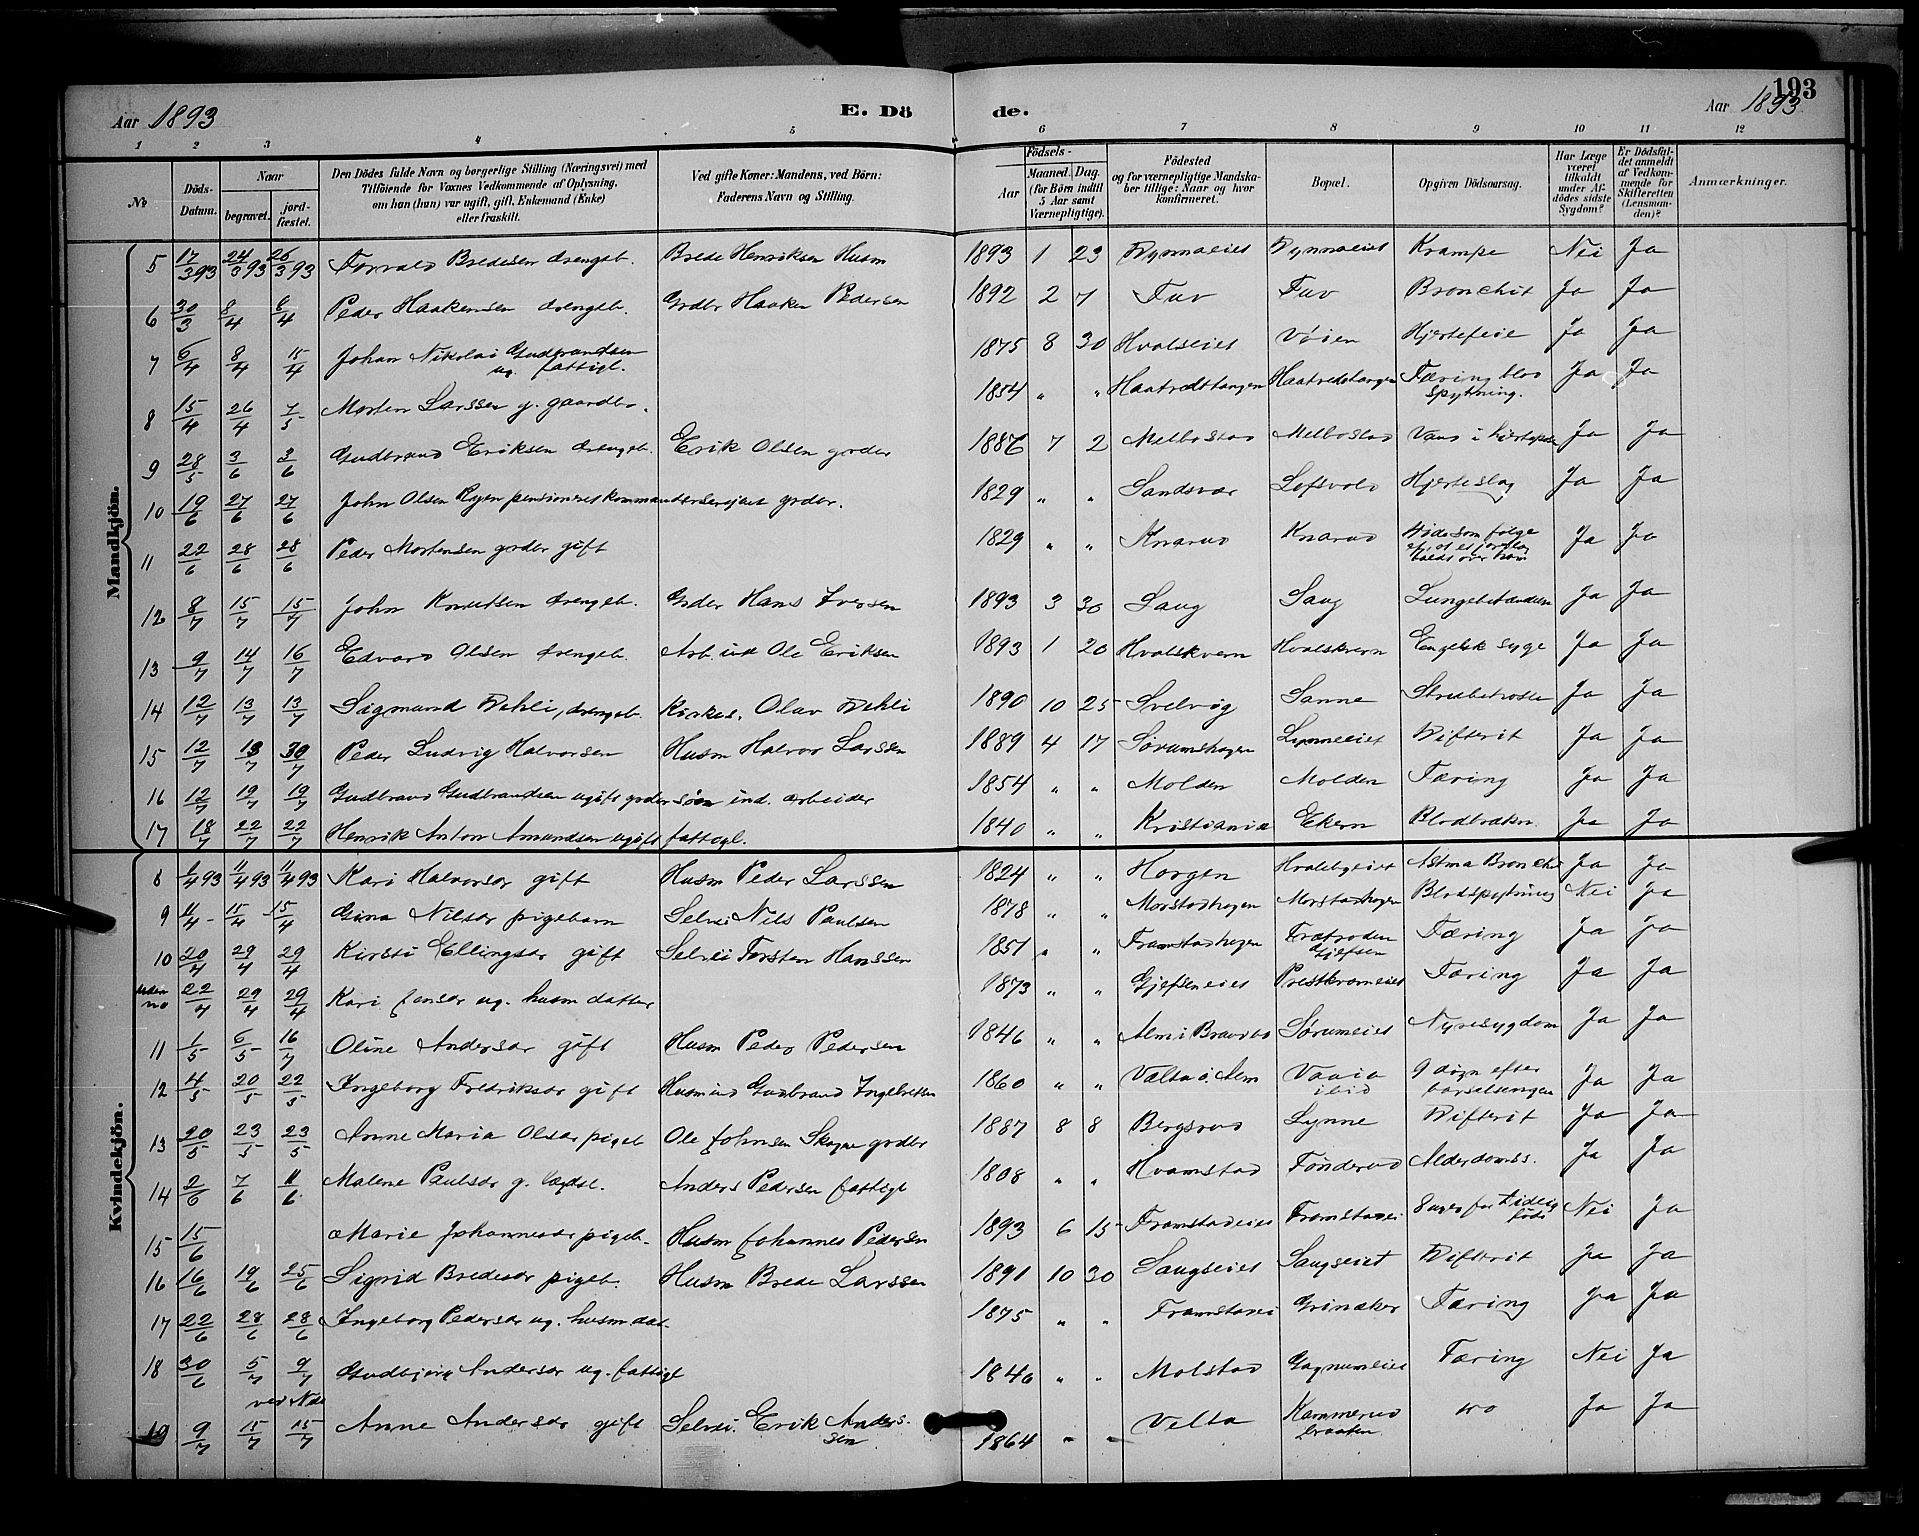 193
Aar 1893 E. Dö de. Aar 1893.
1 2 3 4 5 6 7 8 9 10 11 12
No Döds-Datum. Naar begravet. jord-fæstet. Den Dödes fulde Navn og borgerlige Stilling (Næringsvei) med Tilföiende for Voxnes Vedkommende af Oplysning, om han (hun) var ugift, gift, Enkemand (Enke) eller fraskilt. Ved gifte Koner: Mandens, ved Börn: Faderens Navn og Stilling. Födsels- Aar Maaned. Dag. (for Börn indtil 5 Aar samt Værnepligtige). Födested og for værnepligtige Mandskaber tillige: Naar og hvor konfirmeret. Bopæl. Opgiven Dödsaarsag. Har Læge været tilkaldt under Afdödes sidste Sygdom? Er Dödsfaldet anmeldt af Vedkommende for Skifteretten (Lensmanden)? Anmærkninger.
Mandkjön.
5 17/3 93 24/3 93 26/3 93 Torvald Bredesen drengeb. Brede Henriksen Husm 1893 1 23 Dynnaeiet Dynnaeiet Krampe Nei Ja
6 30/3 8/4 8/4 Peder Haakensen drengeb. Grdbr Haaken Pedersen 1892 2 7 Tuv Tuv Bronchit Ja Ja
7 6/4 8/4 15/4 Johan Nikolai Gudbrandsen ug. fattigl. 1875 8 30 Hvalseiet Vöien Hjertefeil Ja Ja
8 15/4 26/4 7/5 Morten Larssen g. gaardbr. 1854 " " Haatvedttangen Haatvedttangen Tæring blodspytning. Ja Ja
9 28/5 3/6 3/6 Gudbrand Eriksen drengeb. Erik Olsen grdbr 1886 7 2 Melbostad Melbostad Vand i hjerteposen Ja Ja
10 19/6 27/6 27/6 John Olsen Ryen pensioneret kommandersersjant grdbr. 1829 " " Sandsvær Lofsvold Hjerteslag Ja Ja
11 22/6 28/6 28/6 Peder Mortensen grdbr gift 1829 " " Knarud Knarud Döde som fölge af at et jordlag faldt over ham Ja Ja
12 8/7 15/7 15/7 John Knutsen drengeb. Grdbr Hans Iversen 1893 3 30 Saug Saug Lungebetændelse Ja Ja
13 9/7 14/7 16/7 Edvard Olsen drengeb. Arb. ind Ole Eriksen 1893 1 20 Hvalskvern Hvalskvern Engelsk syge Ja Ja
14 12/7 13/7 13/7 Sigmund Dehli, drengeb. Kirkes. Olav Dehli 1890 10 25 Svelvig Sanne Ja Ja
15 12/7 13/7 30/7 Peder Ludvig Halvorsen Husm Halvor Larssen 1889 4 17 Sörumshagen Lynneeiet Difterit Ja Ja
16 12/7 19/7 19/7 Gudbrand Gudbrandsen ugift grdbr sön ind. arbeider 1854 " " Molden Molden Tæring Ja Ja
17 18/7 22/7 22/7 Henrik Anton Amundsen ugift fattigl. 1840 " " Kristiania Ekern Ja Ja
Kvindekjön.
8 1/4 93 11/4 93 11/4 93 Kari Halvorsdr gift Husm Peder Larssen 1824 " " Horgen Hvalebyeiet Astma Bronchit Ja Ja
9 11/4 15/4 15/4 Gina Nilsdr pigebarn Selvei Nils Paulsen 1878 " " Morstadhagen Morstadhagen Blodspytning Nei Ja
10 20/4 29/4 29/4 Kirsti Ellingsdr gift Selvei Torsten Hanssen 1851 " " Framstadhagen Gjefsen Tæring Ja Ja
uden no 22/4 29/4 29/4 Kari Jensdr ug. husm datter 1873 " " Gjefseneiet Prestkverneiet Tæring Ja Ja
11 1/5 6/5 16/7 Oline Andersdr gift Husm Peder Pedersen 1846 " " Alm i Brandbo Sörumeiet Nyresygdom Ja Ja
12 4/5 20/5 22/5 Ingeborg Fredriksdr gift Husm ind Gudbrand Ingebretsen 1860 " " Velta ö. Alm ibid 9 dögn efter barselsengen Ja Ja
13 20/5 23/5 23/5 Anne Maria Olsdr pigeb Ole Johnsen Skogen grdbr 1887 8 8 Bergsrud Lynne Difterit Ja Ja
14 2/6 7/6 11/6 Malene Paulsdr g. Lægdsl. Anders Pedersen fattigl 1808 " " Hvamstad Tönderud Alderdomss. Ja Ja
15 15/6 Marie Johannesdr pigeb. Husm Johannes Pedersen 1893 6 15 Framstadeiet Framstadei 8 uger for tidlig födt Nei Ja
16 16/6 19/6 25/6 Sigrid Bredesdr pigeb. Husm Brede Larssen 1891 10 30 Saugseiet Saugseiet Difterit Ja Ja
17 22/6 28/6 28/6 Ingeborg Pedersdr ug. husm dat. 1875 " " Framstadei Grinaker Tæring Ja Ja
18 30/6 5/7 9/7 Gudbjörg Andersdr ug. fattigl 1846 " " Molstad Gagnumeiet Tæring Nei Ja
19 9/7 15/7 15/7 Anne Andersdr gift Selvei. Erik Anderssen 1864 " " Velta Kammerud braaten do Ja Ja